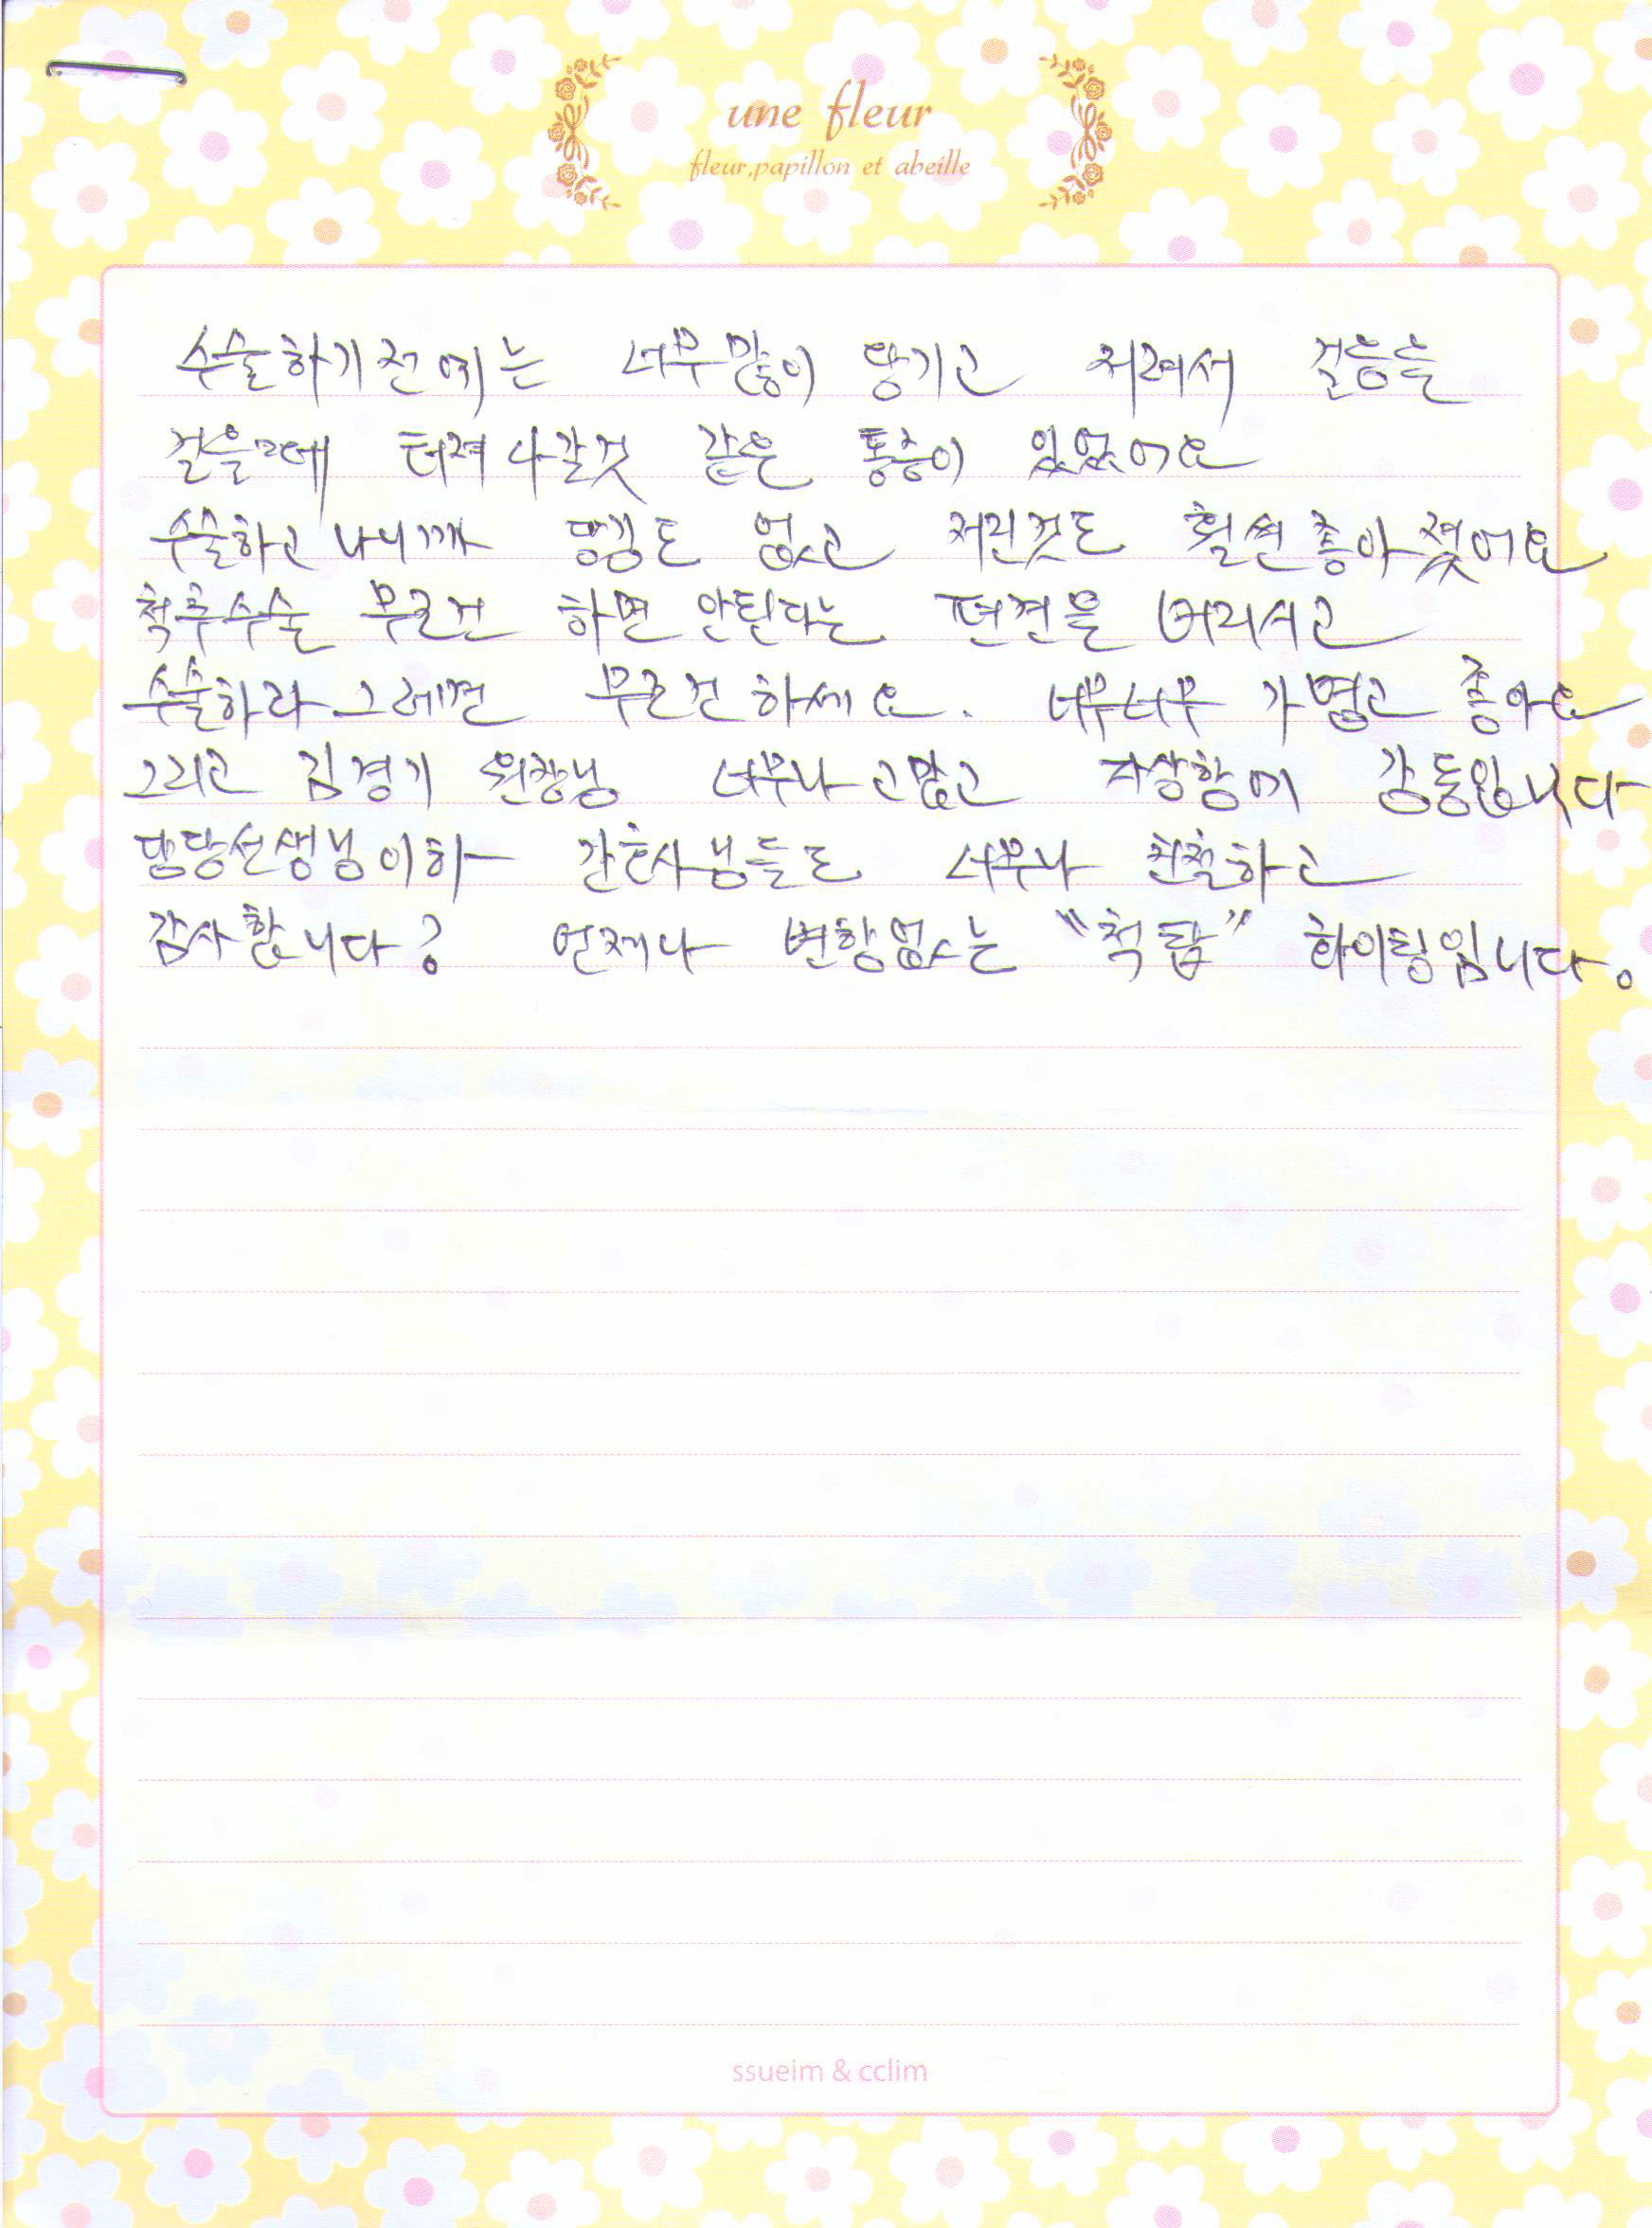 une fleur
fleur,papillon et abeille
수술하기전에는 너무많이 땅기고 저려서 걸음을
걸을때 터져나갈것 같은 통증이 있었어요
수술하고 나니까 땅김도 없고 저린것도 훨씬 좋아졌어요
척추수술 무조건 하면 안된다는 편견을 버리시고
수술하라그레면 무조건하세요. 너무너무 가볍고 좋아요
그리고 김경기 원장님 너무나 고맙고 자상함에 감동입니다
담당선생님이하 간호사님들도 너무나 친절하고
감사합니다? 언제나 변함없는 "척탑" 화이팅입니다。
ssueim & cclim